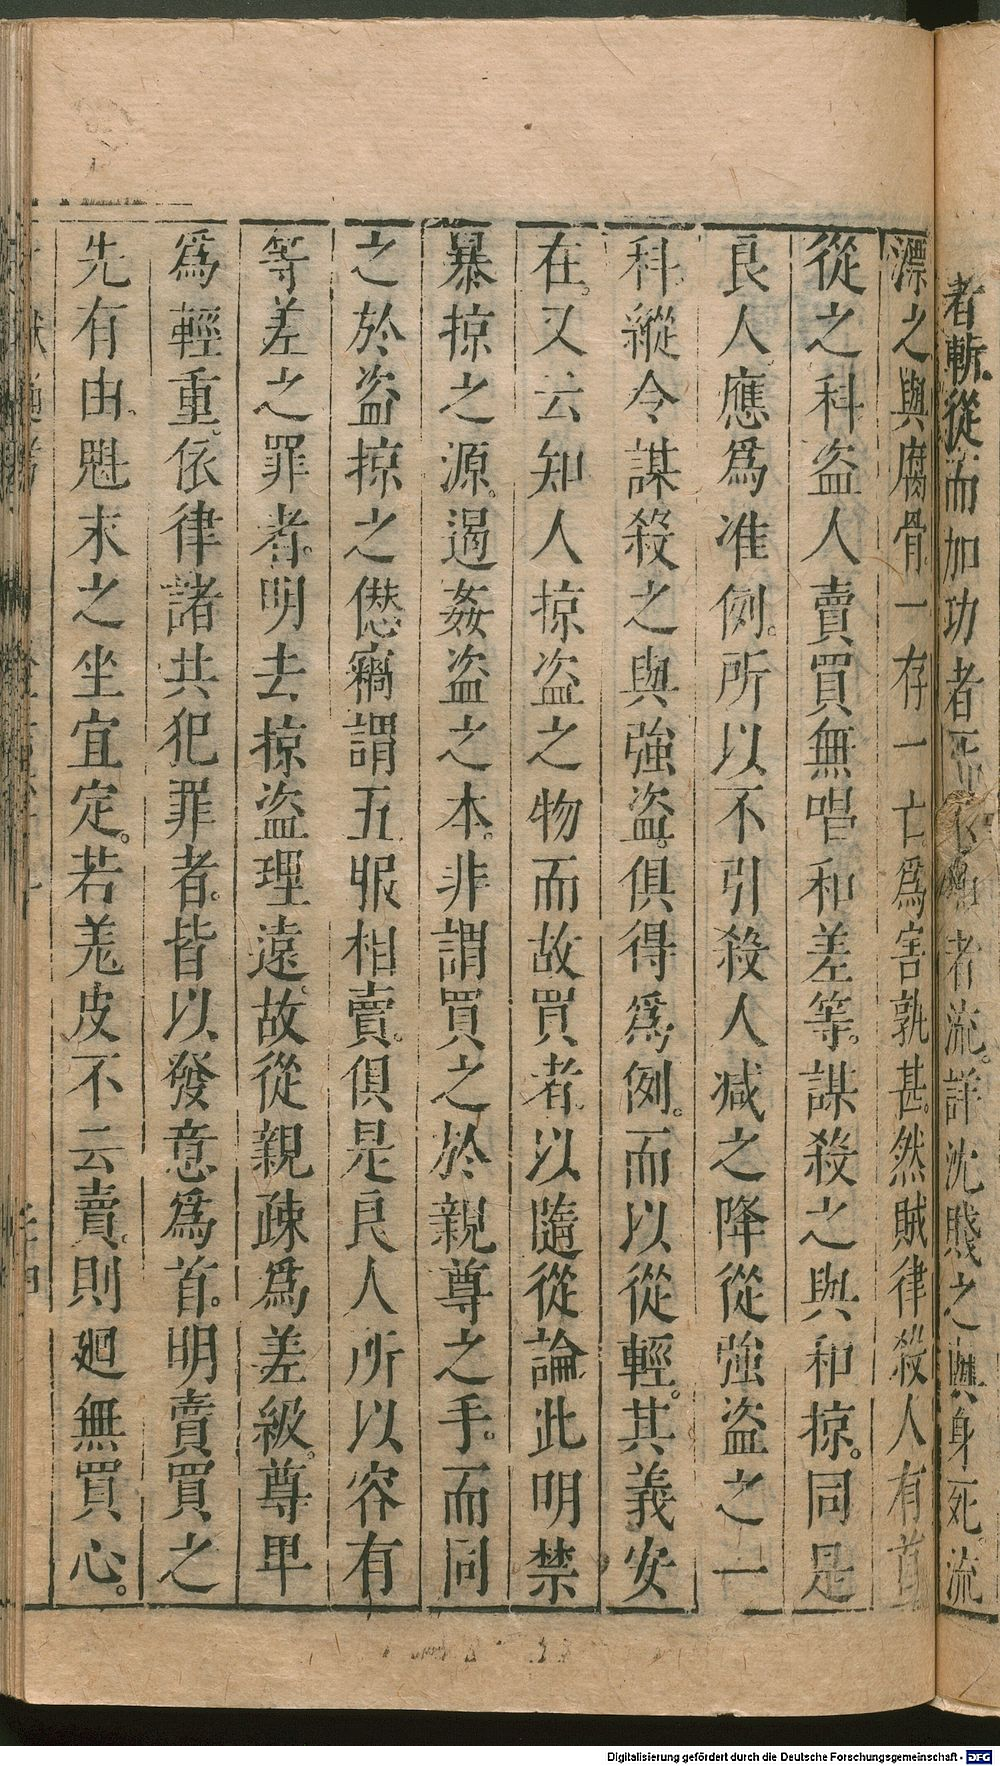 者斬從而加功者死不加者流詳沈賤之與身死流
漂之與腐骨一存一亡爲害孰甚然賊律殺人有首
從之科盗人賣買無唱和差等謀殺之與和掠同是
良人應爲准例所以不引殺人減之降從強盗之一
科縱令謀殺之與強盗俱得爲例而以從輕其義安
在又云知人掠盗之物而故買者以隨從論此明禁
暴掠之源遏姦盗之本非謂買之於親尊之手而同
之於盗掠之愆竊謂五服相賣俱是良人所以容有
等差之罪者明去掠盗理遠故從親疎爲差級尊卑
爲輕重依律諸共犯罪者皆以發意爲首明賣買之
先有由魁末之坐宜定若羗皮不云賣則廻無買心
Digitalisierung gefördert durch die Deutsche Forschungsgemeinschaft - DFG